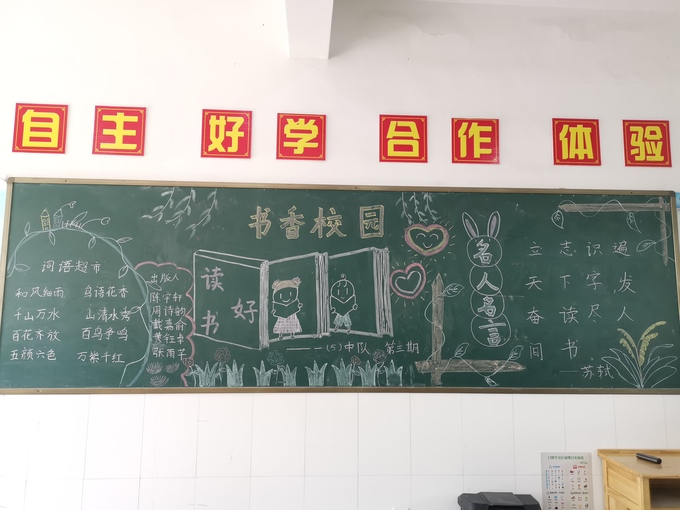 自主 好学 合作 体验
书香校园
词语超市
和风细雨 鸟语花香
千山万水 山清水秀
百花齐放 百鸟争鸣
五颜六色 万紫千红
出版人
陈宇轩
周诗韵
戴嘉俞
黄钰卓
张雨芊
读
书
好
——一(5)中队 第三期
名人名言
立志识遍
天下字 发
奋读尽人
间书
——苏轼